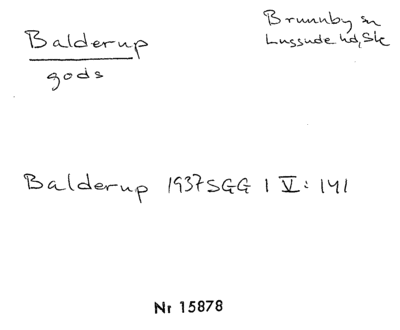 Balderup
gods
Brunnby sn
Luggude hd, Sk
Balderup 1937 SGG I V: 141
Nr 15878